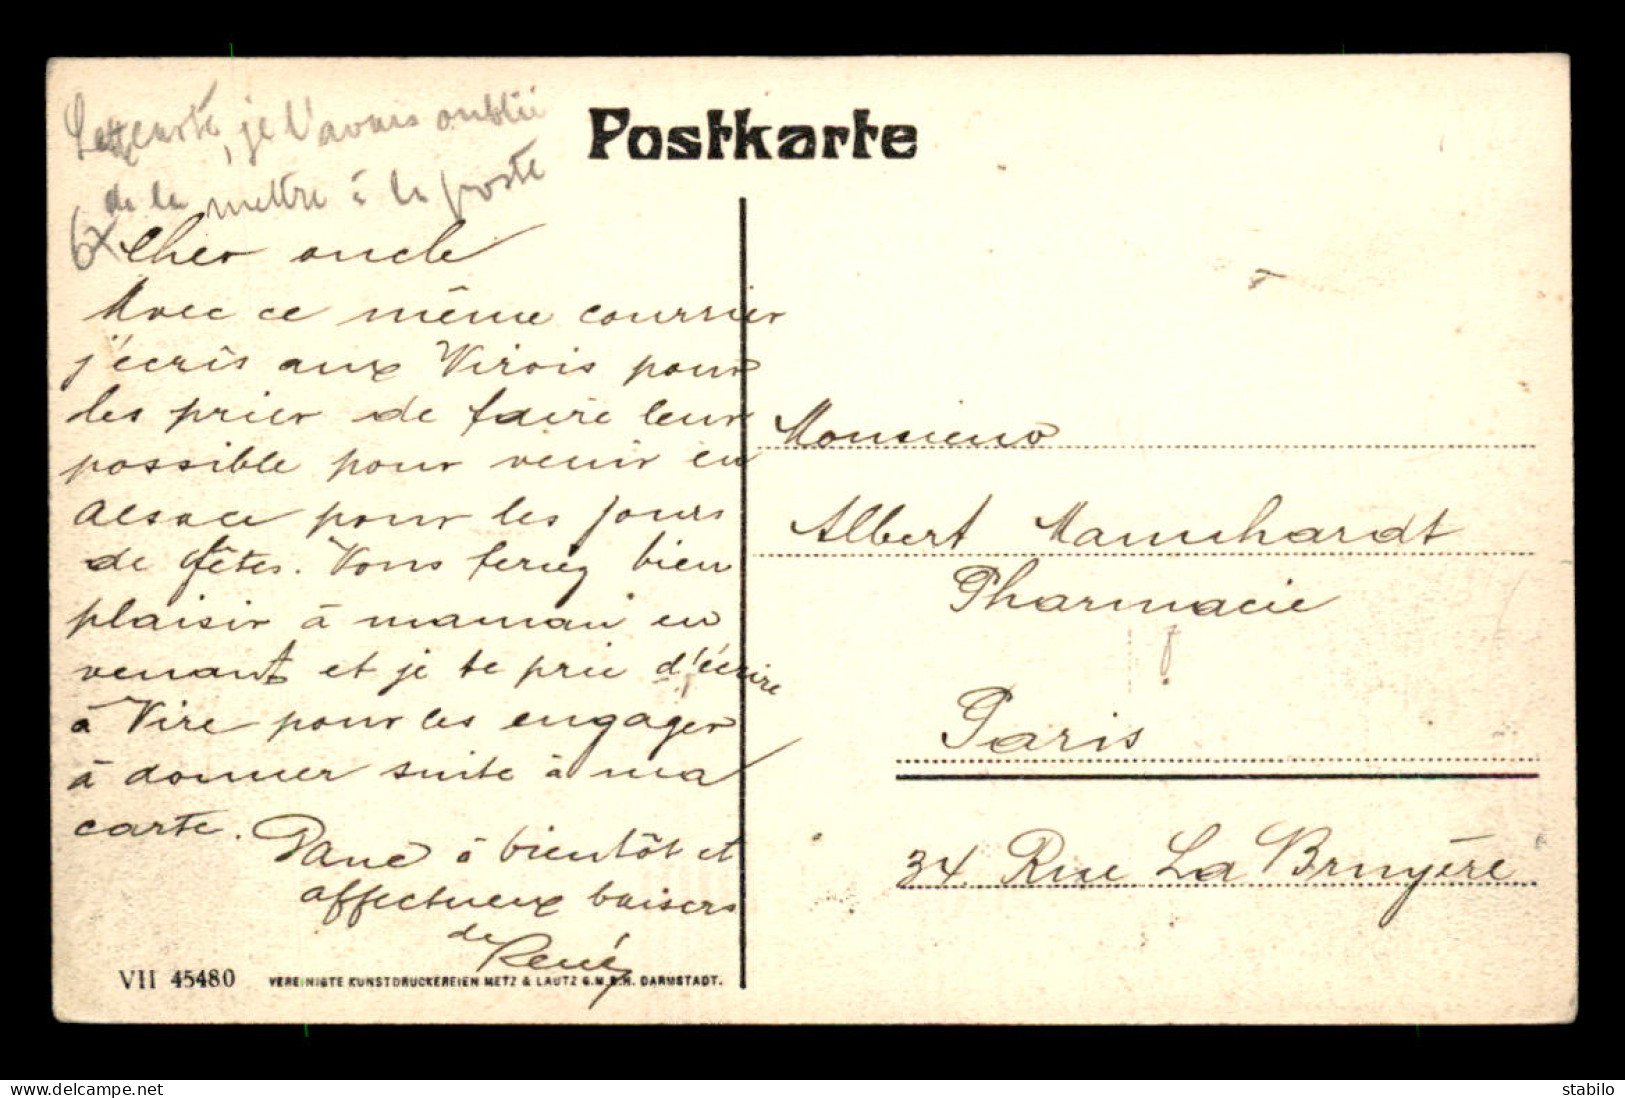 Cette carte, je l'avais oublié
de la mettre à la poste
Postkarte
6x
Cher oncle
Avec ce même courrier
j'écris aux Virois pour
les prier de faire leur
possible pour venir en
Alsace pour les jours
de fêtes. Vous feriez bien
plaisir à maman en
venant et je te prie d'écrire
à Vire pour les engager
à donner suite à ma
carte.
Donc à bientôt et
affectueux baisers
de René
VII 45480
VEREINIGTE KUNSTDRUCKEREIEN METZ & LAUTZ G.M.B.H. DARMSTADT.
Monsieur
Albert Mannhardt
Pharmacie
Paris
34 Rue La Bruyère
delcampe.net
stabilo